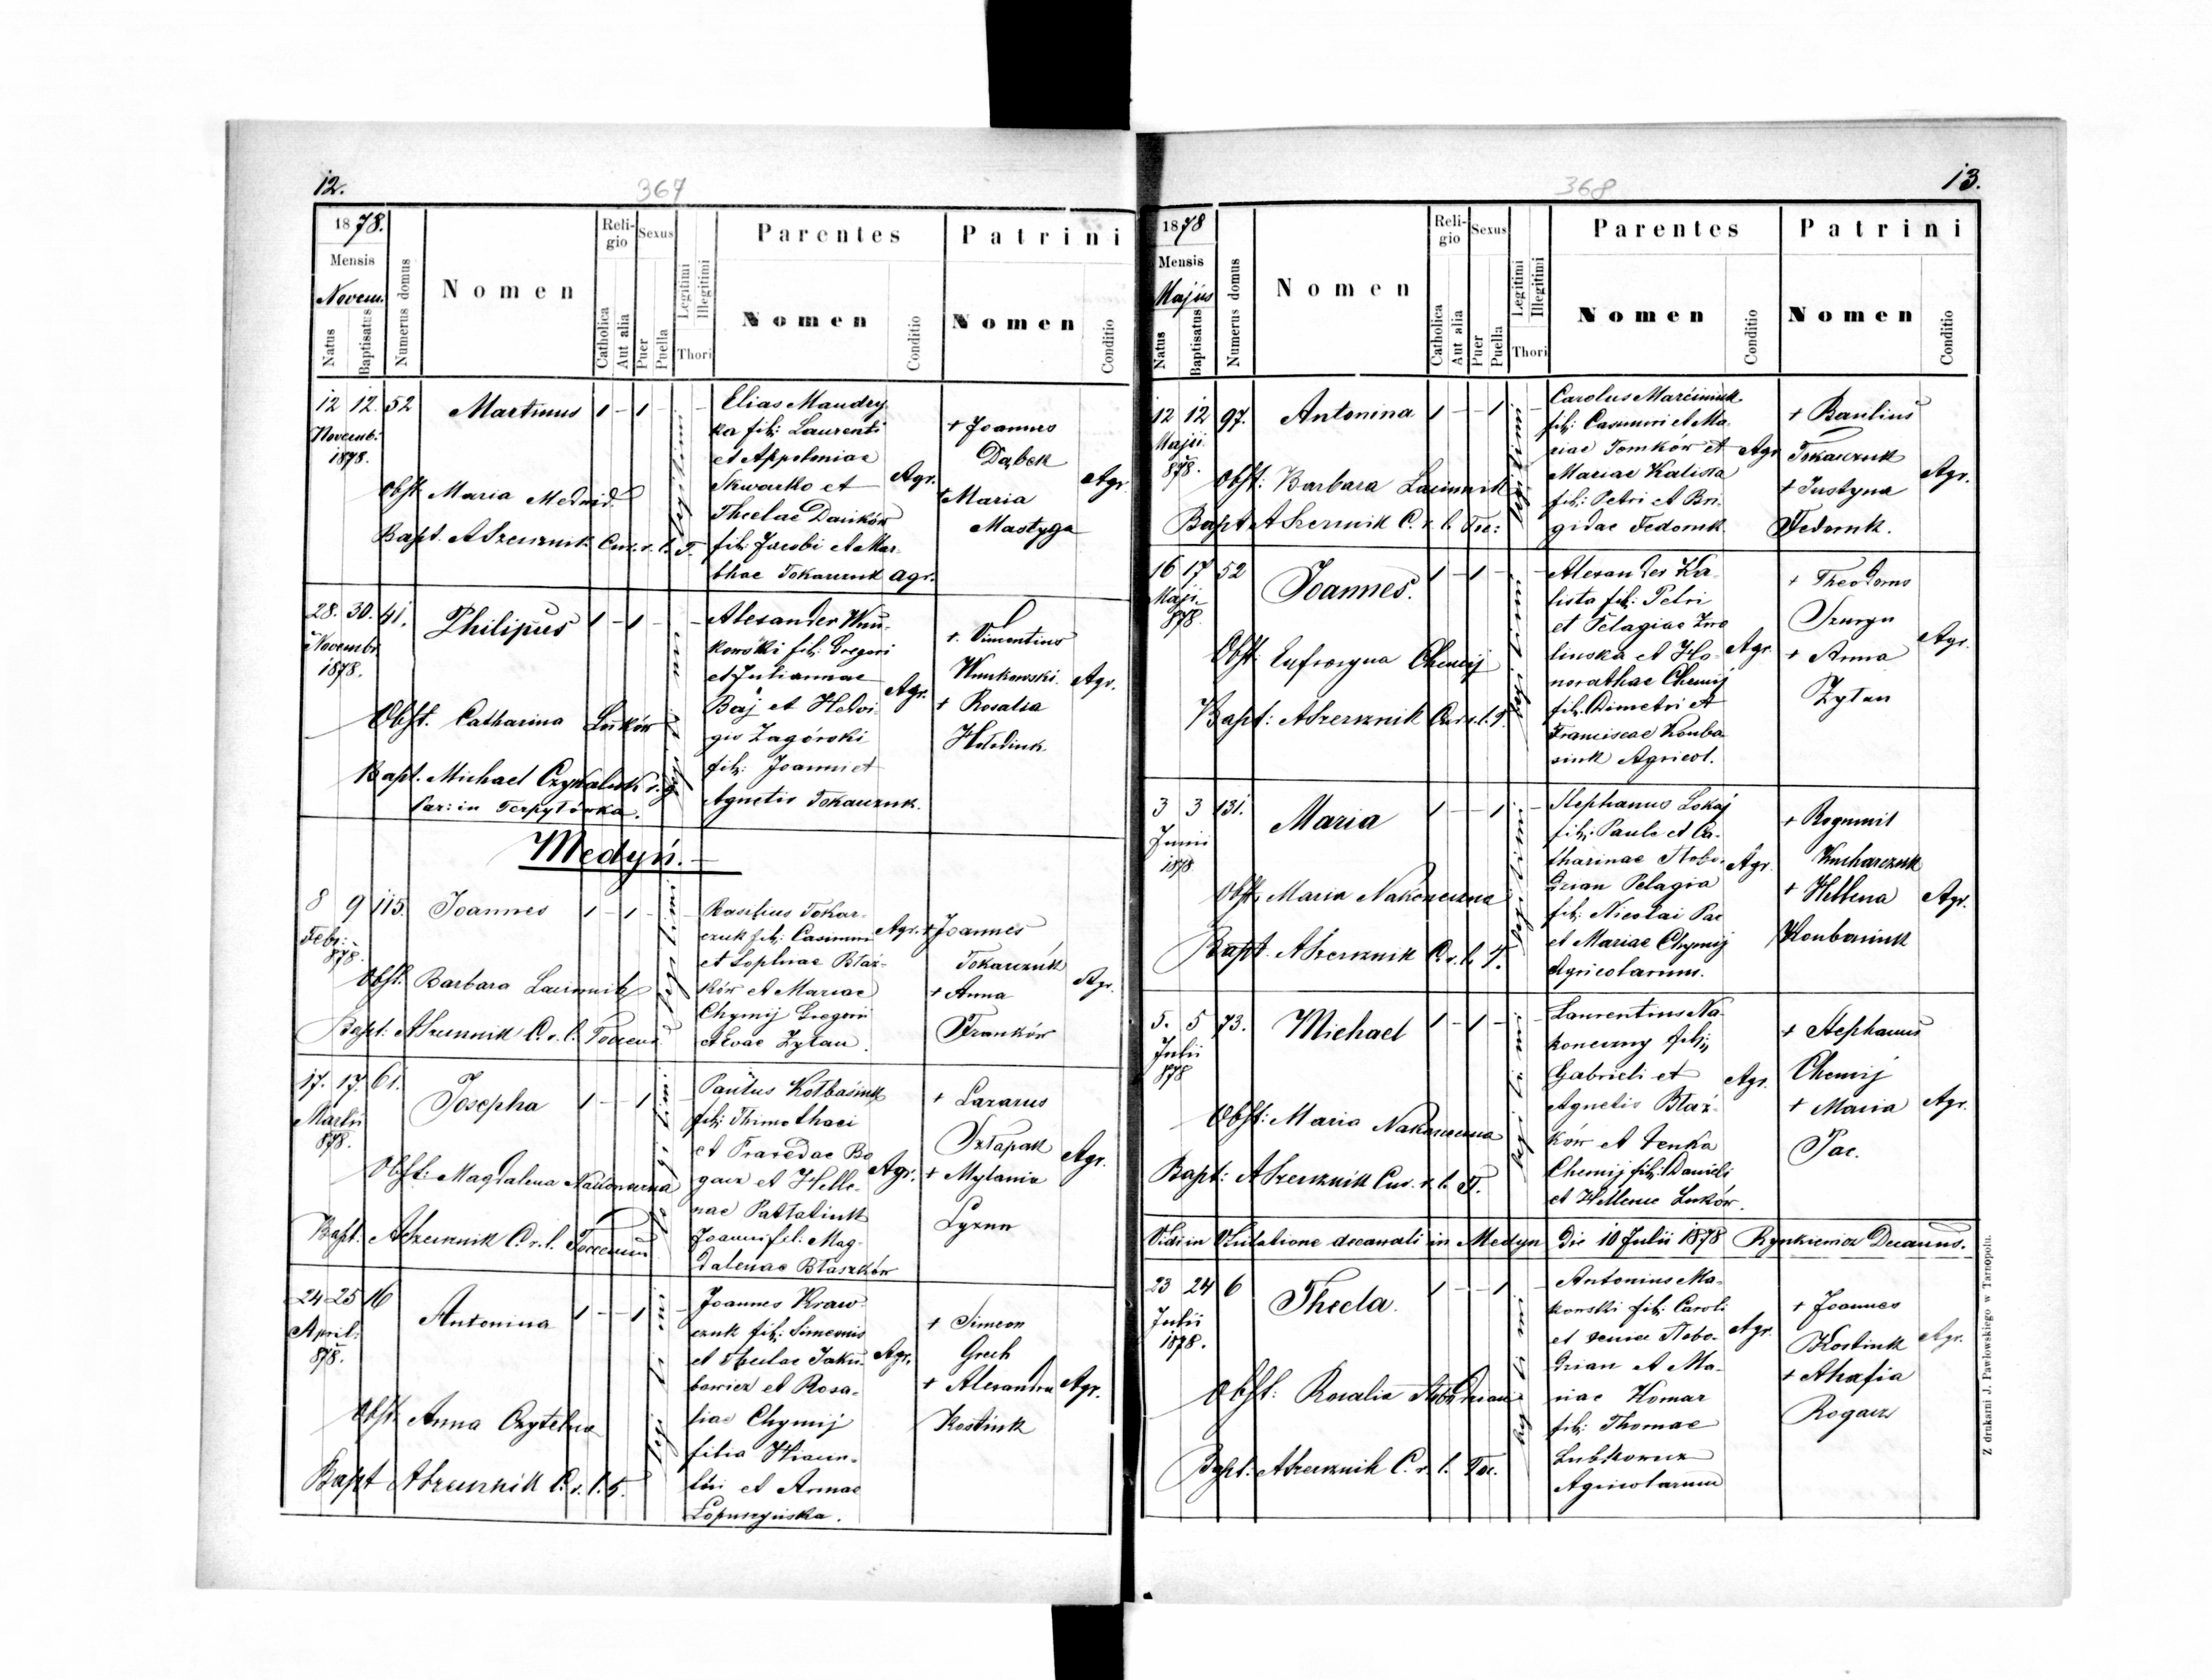 12.
367
1878.
Mensis
Novem.
Natus
Baptisatus
Numerus domus
Nomen
Religio
Catholica
Aut alia
Sexus
Puer
Puella
Legitimi
Illegitimi
Thori
Parentes
Nomen
Conditio
Patrini
Nomen
Conditio
12 12. 52 Martinus 1 - 1 - -
Novemb.
1878.
Obst. Maria Medwid
Bapt. ASzerznik Cur. r. l. T.
legitimi
Elias Maudry
ka fil: Laurenti
et Appoloniae
Skwarko et
Theclae Dańków
fil: Jacobi et Mar-
thae Tokarczuk agr.
Agr.
+ Joannes
Dąbek
+ Maria
Mastyga
Agr.
28. 30. 41. Philipus 1 - 1 - -
Novembr
1878.
Obst. Catharina Luków
Bapt. Michael
Par: in Terpyłówka.
Alexander Wnu-
kowski fil: Gregori
et Juliannae
Baj et Hedvi-
gis Zagórski
fil: Joanni et
Agnetis Tokarczuk.
Agr.
+ Vincentius
Wnukowski
+ Rosalia
Agr.
Medyń.
8 9 115. Joannes 1 - 1 - -
Febr:
878.
Obst. Barbara
Bapt: ASzerznik C. r. l.
legitimi
Basilius Tokar-
czuk fil: Casimiri
et Sophiae Błaż-
ków et Mariae
Chymij Gregorii
et Evae Zytan.
Agr.
+ Joannes
Tokarczuk
+ Anna
Franków
Agr.
17. 17. 61. Josepha 1 - - 1 -
Martii
878.
Obst: Magdalena
Bapt. ASzerznik C. r. l.
Paulus Kolbasiuk
fil: Thimothaei
et Praxedae Ro
gacz et Helle-
nae
Joanni fil. Mag-
dalenae Błaszków
Agr.
+ Lazarus
Szłapak
+ Mylania
Agr.
24 25 16 Antonina 1 - - 1 -
April.
878.
Obst. Anna Czytelna
Bapt ASzerznik C. r. l. T.
Joannes Kraw
czuk fil: Simeonis
et Theclae Jaku-
bowicz et Rosa-
liae Chymij
filia
et Annae
Łopuszyńska.
Agr.
+ Simeon
Grech
+ Alexandra
Kostiuk
Agr.
368
13.
1878
Mensis
Majus
Natus
Baptisatus
Numerus domus
Nomen
Religio
Catholica
Aut alia
Sexus
Puer
Puella
Legitimi
Illegitimi
Thori
Parentes
Nomen
Conditio
Patrini
Nomen
Conditio
12 12 97. Antonina 1 - - 1 -
Maji
878.
Obst: Barbara
Bapt ASzerznik C. r. l. Toc:
legitimi
Carolus Marciniuk
fil: Casimiri et Ma-
riae Tomków et
Mariae Kalista
fil: Petri et Bri-
gidae Fedoruk.
Agr
+ Basilius
Tokarczuk
+ Justyna
Fedoruk.
Agr.
16 17 52 Joannes. 1 - 1 - -
Maji.
878
Obst. Eufrosyna Chemij
Bapt: ASzerznik Cur. r. l. T.
legitimi
Alexander Ka-
lista fil: Petri
et Pelagiae
linska et Ho-
norathae Chemij
fil. Dimetri et
Franciscae Kouba
siuk Agricol.
Agr.
+ Theodorus
+ Anna
Zytan
Agr.
3 3 131. Maria 1 - - 1 -
Junii
1878
Obst. Maria Nakoneczna
Bapt. ASzerznik C. r. l. T.
legitimi
Stephanus Lokaj
fil: Pauli et Ca-
tharinae Stobo-
dzian Pelagia
fil: Nicolai Pac
et Mariae Chymij
Agricolarum.
Agr.
+ Bogumil
Kucharczuk
+ Hellena
Koubasiuk
Agr.
5. 5 73. Michael 1 - 1 - -
Julii
878
Obst: Maria Nakoneczna
Bapt: ASzerznik Cur. r. l. T.
legitimi
Laurentius Na-
koneczny fil:
Gabrieli et
Agnetis Błaż-
ków et Xenka
Chemij fil: Danieli
et Hellenae Luków.
Agr.
+ Stephanus
Chemij
+ Maria
Pac.
Agr.
Vidi in Visitatione decanali in Medyn die 10 Julii 1878 Rynkiewicz Decanus.
23 24 6 Thecla. 1 - - 1 -
Julii
1878.
Obst: Rosalia Stobodzian
Bapt: ASzerznik C. r. l. Toc.
Antonius Ma-
kowski fil: Caroli
et Xeniae Stobo-
dzian et Ma-
riae Homar
fil: Thomae
Agricolarum
Agr.
+ Joannes
Kostiuk
+ Ahafia
Rogacz
Agr.
Z drukarni J. Pawłowskiego w Tarnopolu.